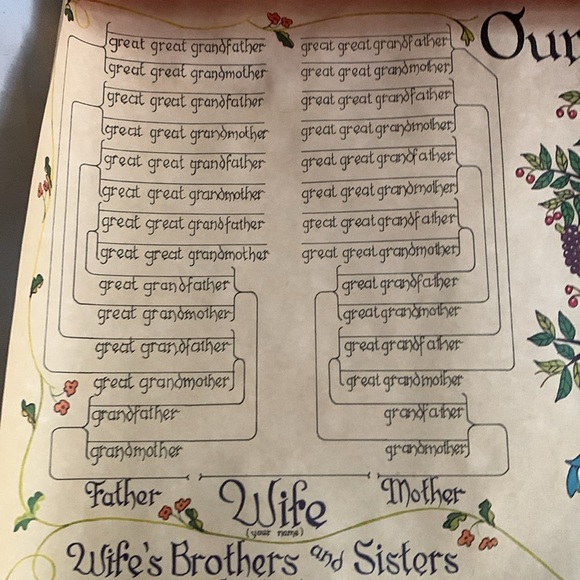 great great grandfather great great grandfather
great great grandmother great great grandmother
great great grandfather great great grandfather
great great grandmother great great grandmother
great great grandfather great great grandfather
great great grandmother great great grandmother
great great grandfather great great grandfather
great great grandmother great great grandmother
great grandfather great grandfather
great grandmother great grandmother
great grandfather great grandfather
great grandmother great grandmother
grandfather grandfather
grandmother grandmother
Father Wife Mother
(your name)
Wife's Brothers and Sisters
Our